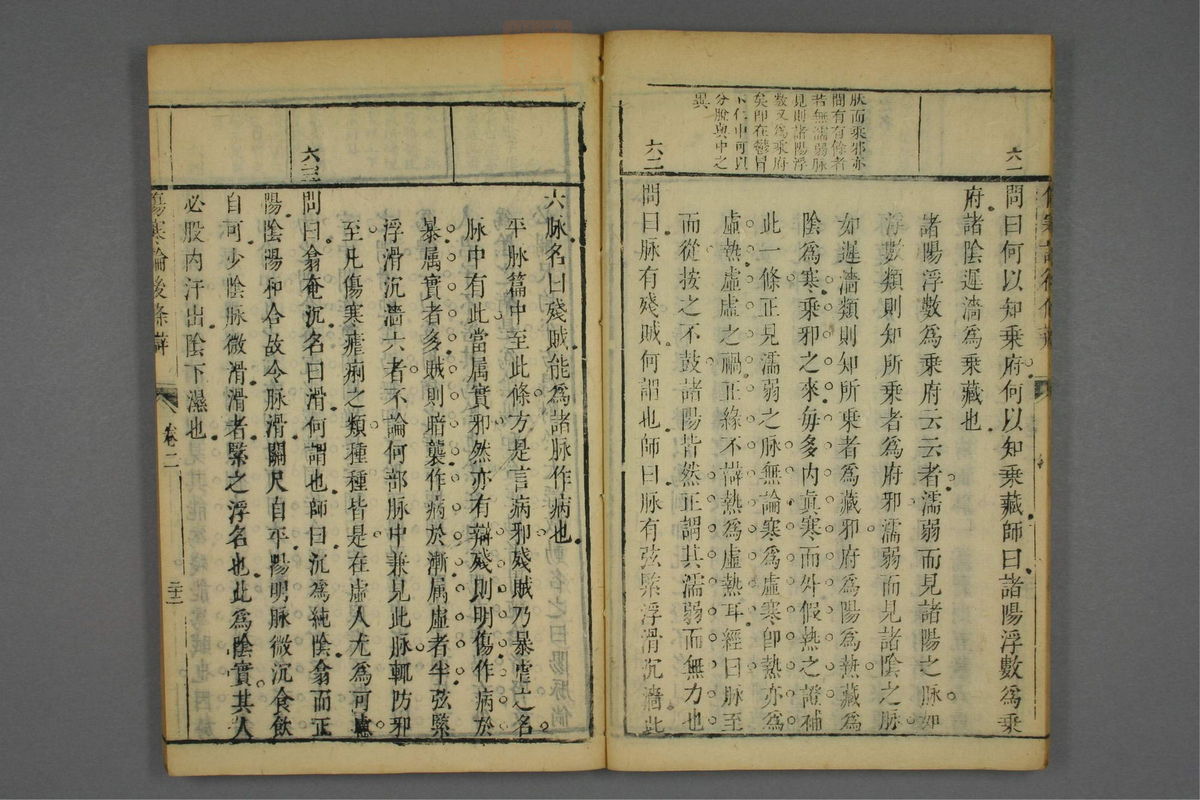 六一
問曰何以知乗府何以知乗藏師曰諸陽浮數爲乗
府諸陰遲濇爲乗藏也
諸陽浮數爲乗府云云者濡弱而見諸陽之脉如
浮數類則知所乗者爲府邪濡弱而見諸陰之脉
如遲濇類則知所乗者爲藏邪府爲陽爲熱藏爲
陰爲寒乗邪之來毎多内眞寒而外假熱之證補
此一條正見濡弱之脉無論寒爲虛寒卽熱亦爲
虛熱虛虛之禍正緣不辯熱爲虛熱耳經曰脉至
而從按之不鼓諸陽皆然正謂其濡弱而無力也
狀而乗邪亦
問有有餘者
若無濡弱脉
見則諸陽浮
數又爲乗府
矣卽在鬱冒
不仁中可以
分股與中之
異
六二
問曰脉有殘賊何謂也師曰脉有弦緊浮滑沉濇此
六脉名曰殘賊能爲諸脉作病也
平脉篇中至此條方是言病邪殘賊乃暴虐之名
脉中有此當属實邪然亦有辯殘則明傷作病於
暴属實者多賊則暗襲作病於漸属虛者半弦緊
浮滑沉濇六者不論何部脉中兼見此脉輒防邪
至凡傷寒瘧痢之類種種皆是在虛人尤爲可慮
六三
問曰翕奄沉名曰滑何謂也師曰沉爲純陰翕而正
陽陰陽和合故令脉滑關尺自平陽明脉微沉食飲
自可少陰脉微滑滑者緊之浮名也此爲陰實其人
必股内汗出陰下濕也
傷寒論後條辯
卷二